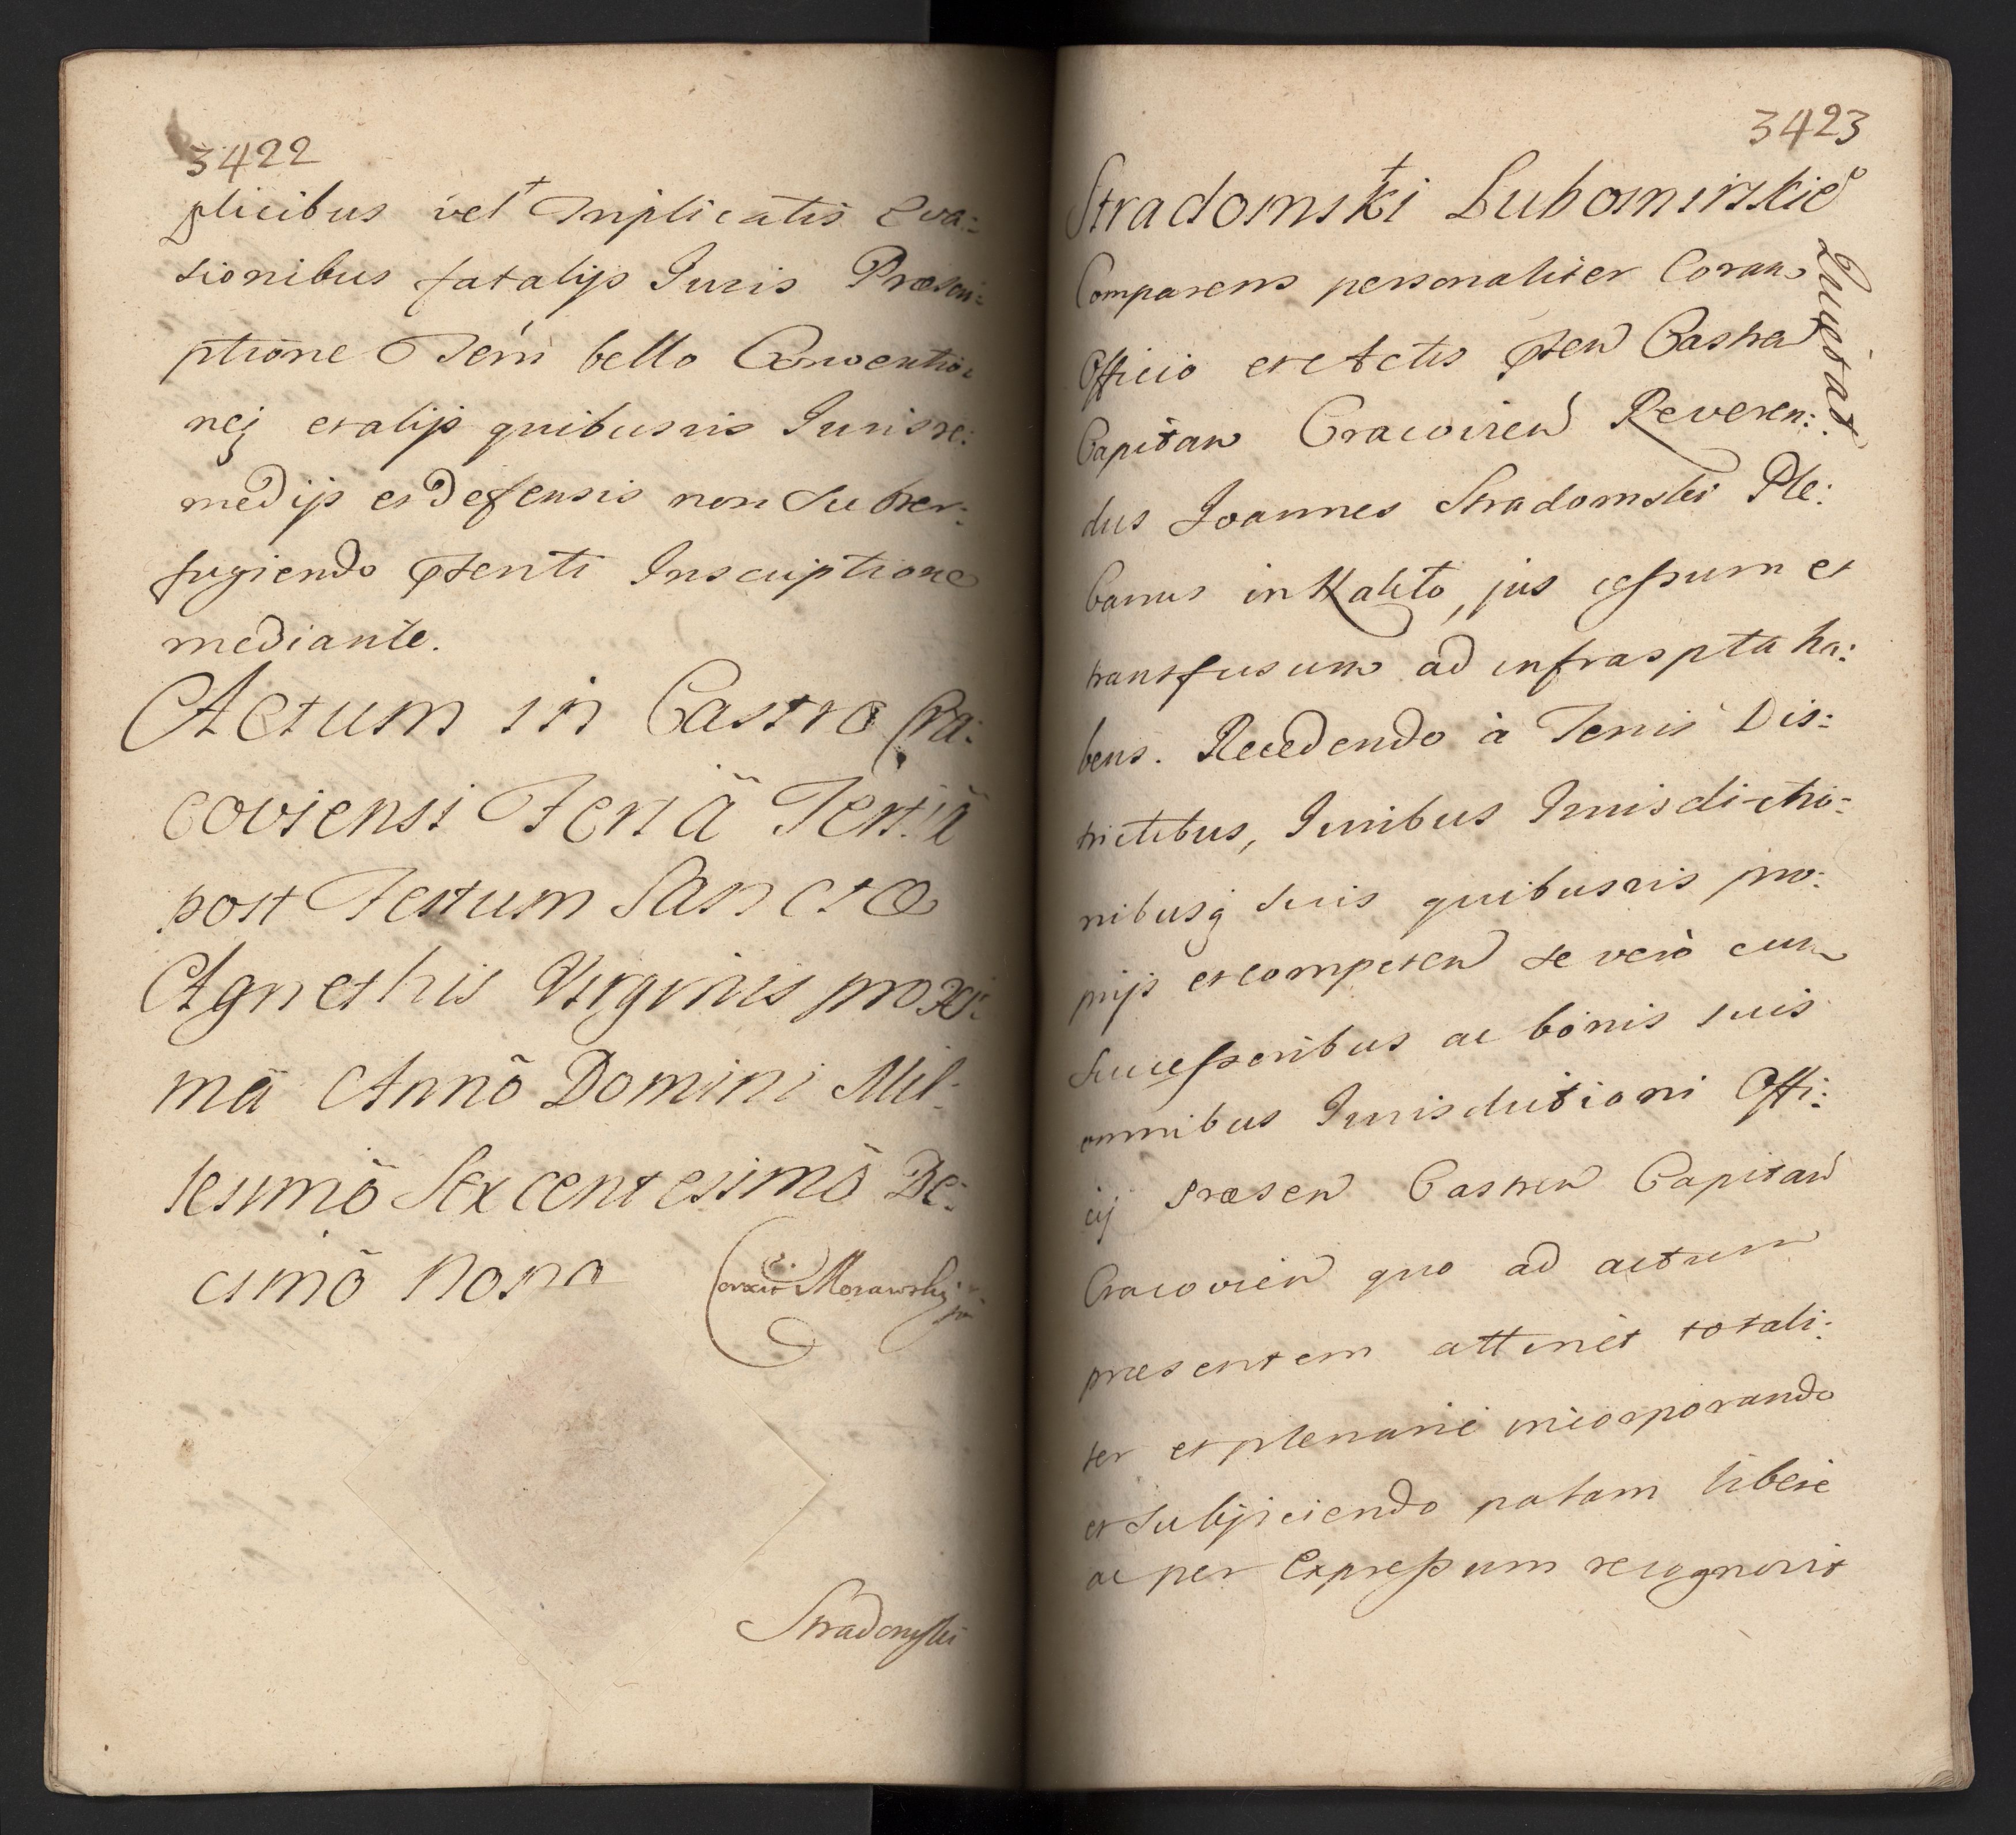 3422
plicibus vel Triplicatis Eva:
sionibus fatalijs Iuris Præscri:
ptione Terrae bello Convocatio:
nej et alijs quibusvis Iuris re:
medijs et defensis non Subter:
fugiendo pnsenti Inscriptione
mediante.
Actum in Castro Cra:
coviensi Feria Tertiâ
post Festum Sanctæ
Agnethis Virginis proxi:
mã Annõ Domini Mil:
lesimõ Sexcentesimõ De:
cimõ Nono
Corexit Morawsky
Stradomski
3423
Stradomski Lubomirskie
Quietat
Comparens personaliter Coram
Officio et Actis pnsen Castren
Capitan Cracovien Reveren:
dus Joannes Stradomski Ple:
banus in, jus cessum et
transfusum ad infraspta ha:
bens. Recedendo à Terris Dis:
trictibus, Iuribus Iurisdictio:
nibusq suis quibusvis pro:
prijs et competen se verò cum
Successoribus ac bonis suis
omnibus Iurisdictioni Offi:
cij Præsen Castren Capitan
Cracovien quo ad actum
præsentem attinet totali:
ter et plenariè incorporando
et Subijciendo palam liberè
ac per Expressum recognovit